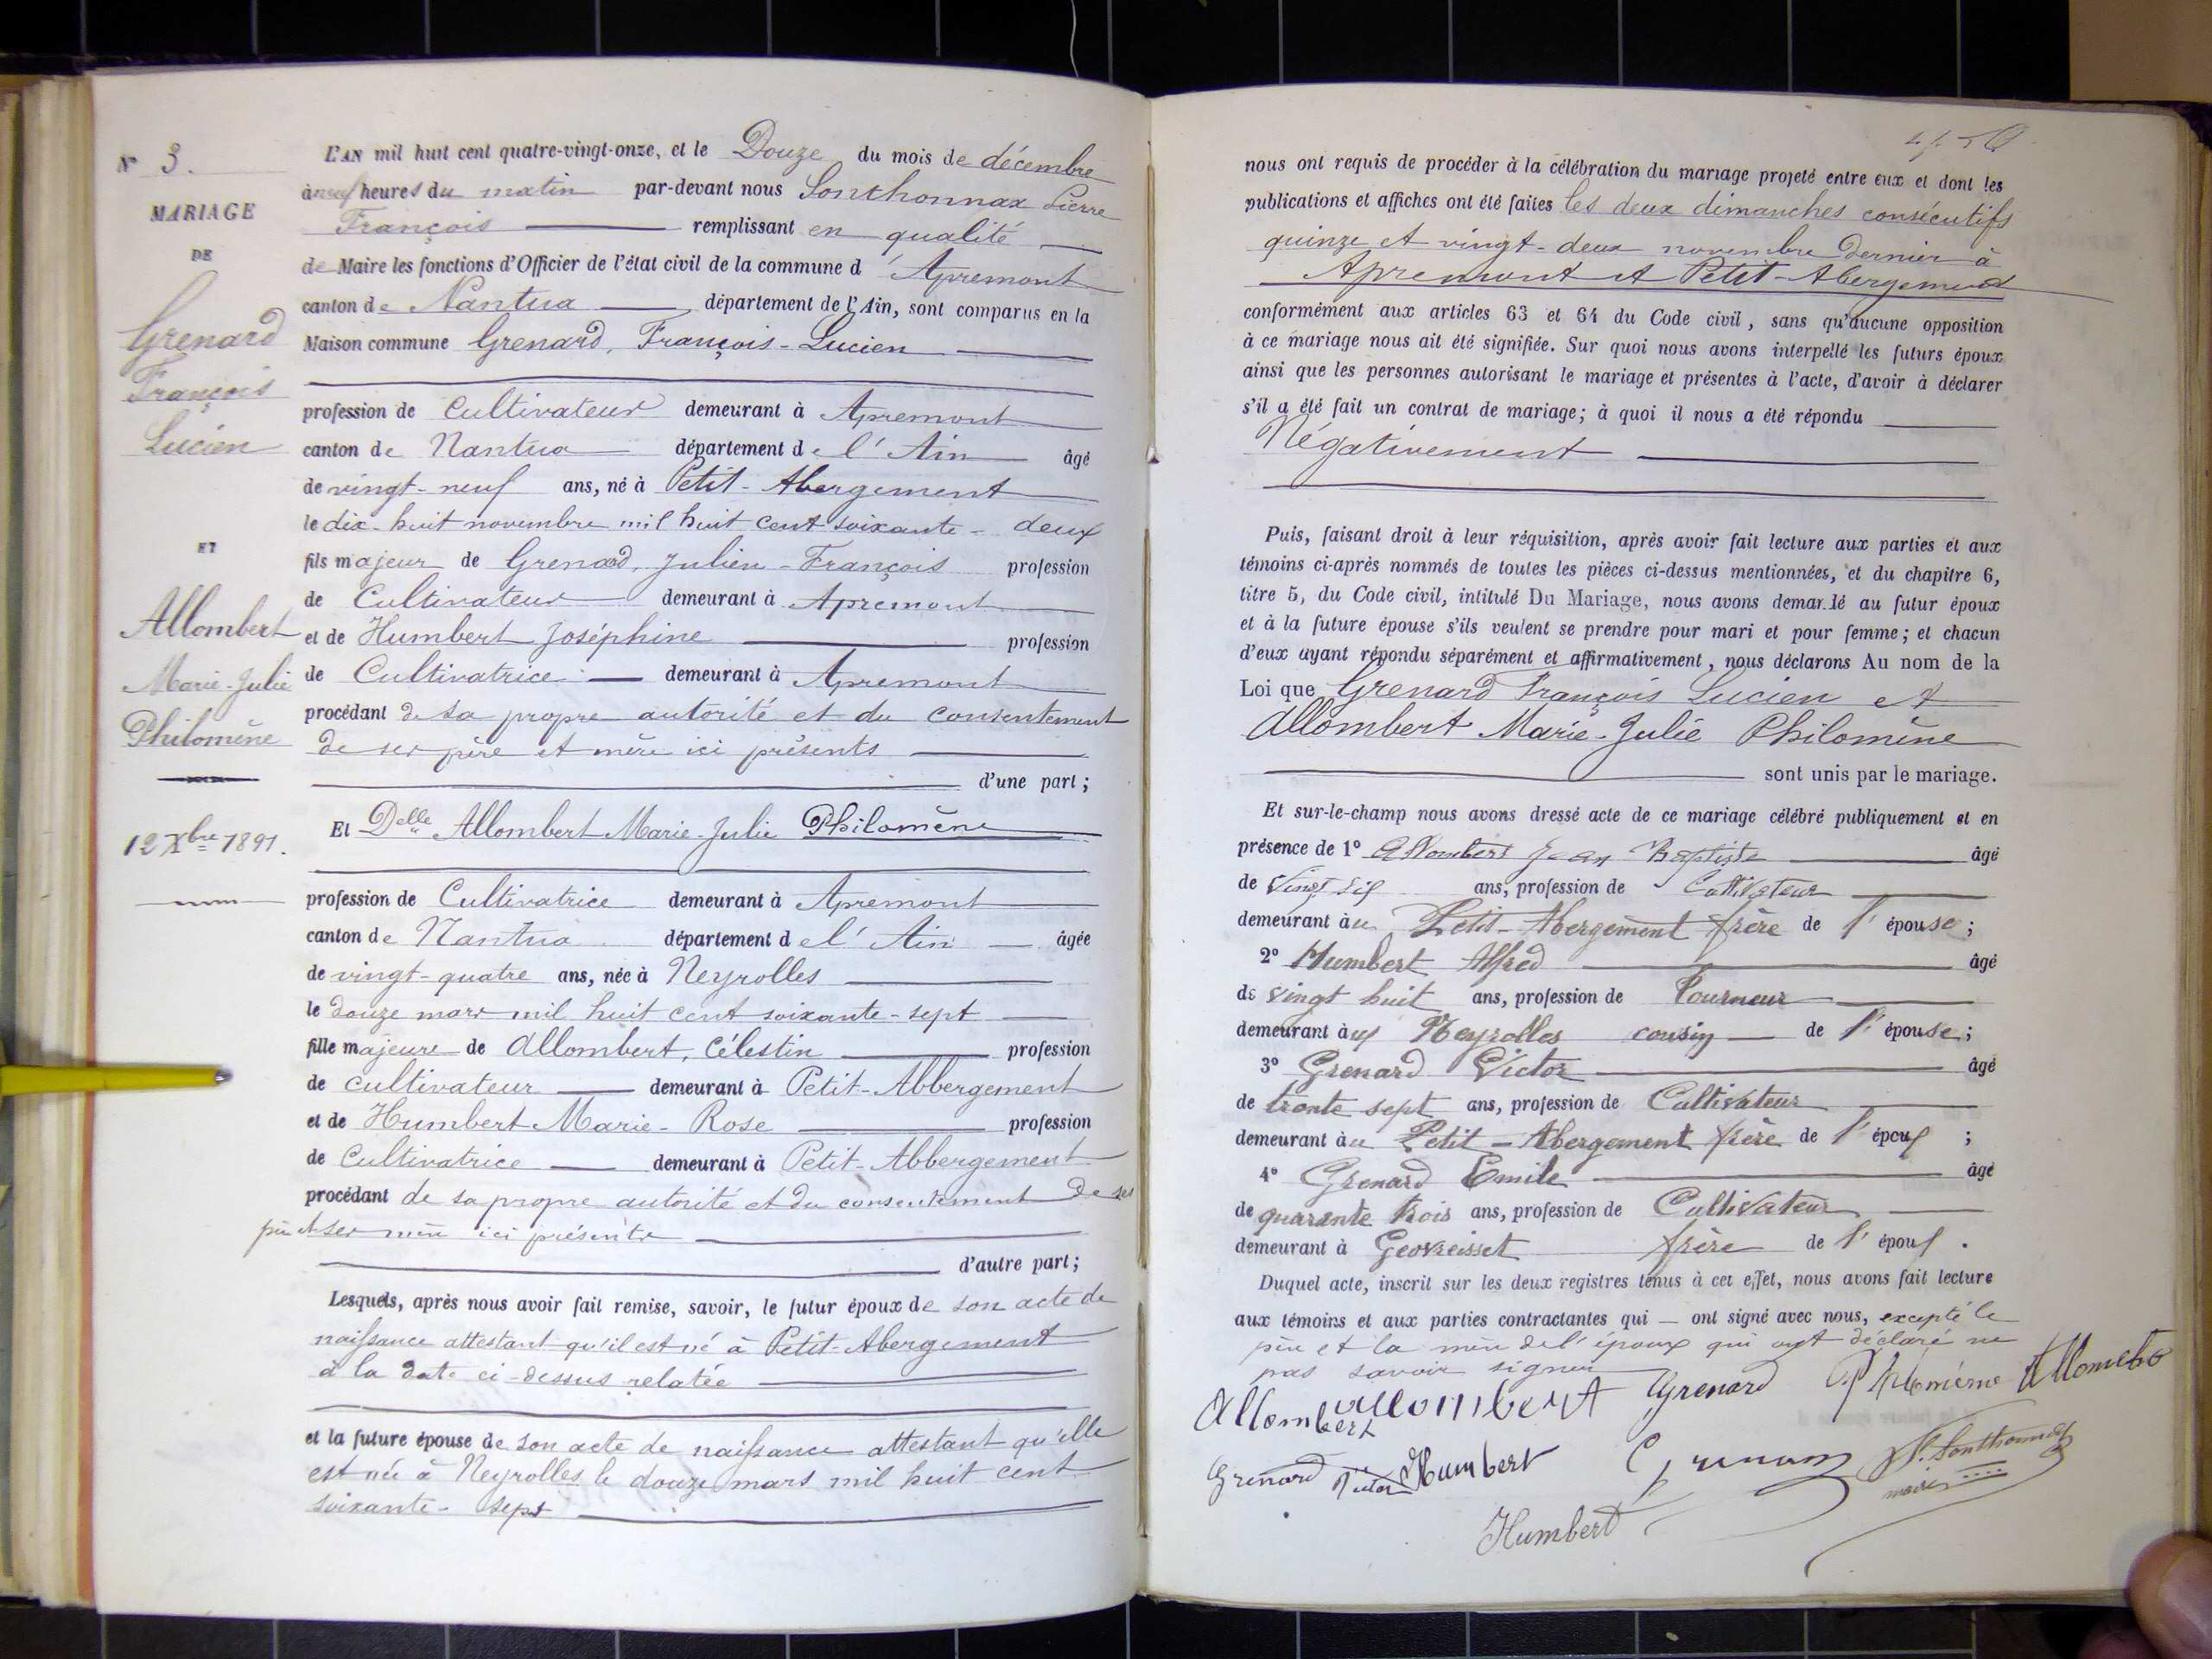 N° 3.
MARIAGE
DE
Grenard
François
Lucien
ET
Allombert
Marie-Julie
Philomène
12 Xbre 1891.
L'AN mil huit cent quatre-vingt-onze, et le Douze du mois de décembre
à neuf heures du matin par-devant nous Sonthonnax Pierre
François remplissant en qualité
de Maire les fonctions d'Officier de l'état civil de la commune d'Apremont
canton de Nantua département de l'Ain, sont comparus en la
Maison commune Grenard, François-Lucien
profession de Cultivateur demeurant à Apremont
canton de Nantua département de l'Ain âgé
de vingt-neuf ans, né à Petit-Abergement
le dix-huit novembre mil huit cent soixante-deux
fils majeur de Grenard, Julien-François profession
de Cultivateur demeurant à Apremont
et de Humbert Joséphine profession
de Cultivatrice demeurant à Apremont
procédant de sa propre autorité et du consentement
de ses père et mère ici présents
d'une part;
Et Delle Allombert Marie-Julie Philomène
profession de Cultivatrice demeurant à Apremont
canton de Nantua département de l'Ain âgée
de vingt-quatre ans, née à Neyrolles
le douze mars mil huit cent soixante-sept
fille majeure de Allombert, Célestin profession
de cultivateur demeurant à Petit-Abbergement
et de Humbert Marie-Rose profession
de Cultivatrice demeurant à Petit-Abbergement
procédant de sa propre autorité et du consentement de ses
père et ser mère ici présents
d'autre part;
Lesquels, après nous avoir fait remise, savoir, le futur époux de son acte de
naissance attestant qu'il est né à Petit-Abergement
à la date ci-dessus relatée
et la future épouse de son acte de naissance attestant qu'elle
est née à Neyrolles le douze mars mil huit cent
soixante-sept
nous ont requis de procéder à la célébration du mariage projeté entre eux et dont les
publications et affiches ont été faites les deux dimanches consécutifs
quinze et vingt-deux novembre dernier à
Apremont et Petit-Abergement
conformément aux articles 63 et 64 du Code civil, sans qu'aucune opposition
à ce mariage nous ait été signifiée. Sur quoi nous avons interpellé les futurs époux
ainsi que les personnes autorisant le mariage et présentes à l'acte, d'avoir à déclarer
s'il a été fait un contrat de mariage; à quoi il nous a été répondu
Négativement
Puis, faisant droit à leur réquisition, après avoir fait lecture aux parties et aux
témoins ci-après nommés de toutes les pièces ci-dessus mentionnées, et du chapitre 6,
titre 5, du Code civil, intitulé Du Mariage, nous avons demandé au futur époux
et à la future épouse s'ils veulent se prendre pour mari et pour femme; et chacun
d'eux ayant répondu séparément et affirmativement, nous déclarons Au nom de la
Loi que Grenard François Lucien et
Allombert Marie-Julie Philomène
sont unis par le mariage.
Et sur-le-champ nous avons dressé acte de ce mariage célébré publiquement et en
présence de 1° Allombert Jean Baptiste âgé
de Vingt six ans, profession de Cultivateur
demeurant à u Petit-Abergement frère de l'épouse;
2° Humbert Alfred âgé
de vingt huit ans, profession de Tourneur
demeurant à ux Neyrolles cousin de l'épouse;
3° Grenard Victor âgé
de trente sept ans, profession de Cultivateur
demeurant à u Petit-Abergement frère de l'époux;
4° Grenard Emile âgé
de quarante trois ans, profession de Cultivateur
demeurant à Geovreisset frère de l'époux.
Duquel acte, inscrit sur les deux registres tenus à cet effet, nous avons fait lecture
aux témoins et aux parties contractantes qui ont signé avec nous, excepté le
père et la mère de l'époux qui ont déclaré ne
pas savoir signer
Allombert Allombert Grenard Philomène Allombert
Grenard Victor Humbert Grenard P. Sonthonnax
maire
Humbert